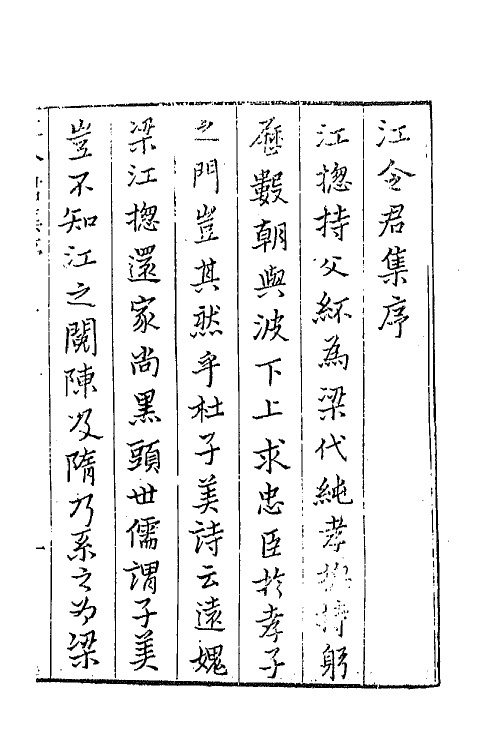 江令君集序
江揔持父紑為梁代純孝揔持躬
歷數朝與波下上求忠臣於孝子
之門豈其然乎杜子美詩云遠媿
梁江揔還家尚黑頭世儒謂子美
豈不知江之閱陳及隋乃系之為梁